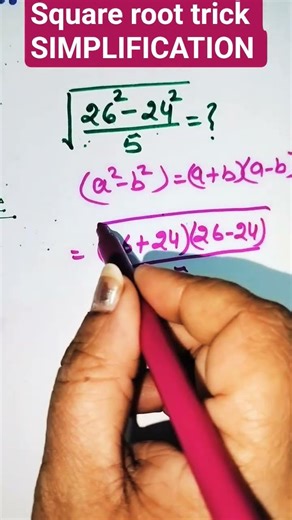 Square root trick
SIMPLIFICATION
√((26² − 24²)/5) = ?
(a² − b²) = (a+b)(a−b)
= 6 + 24)(26 − 24)